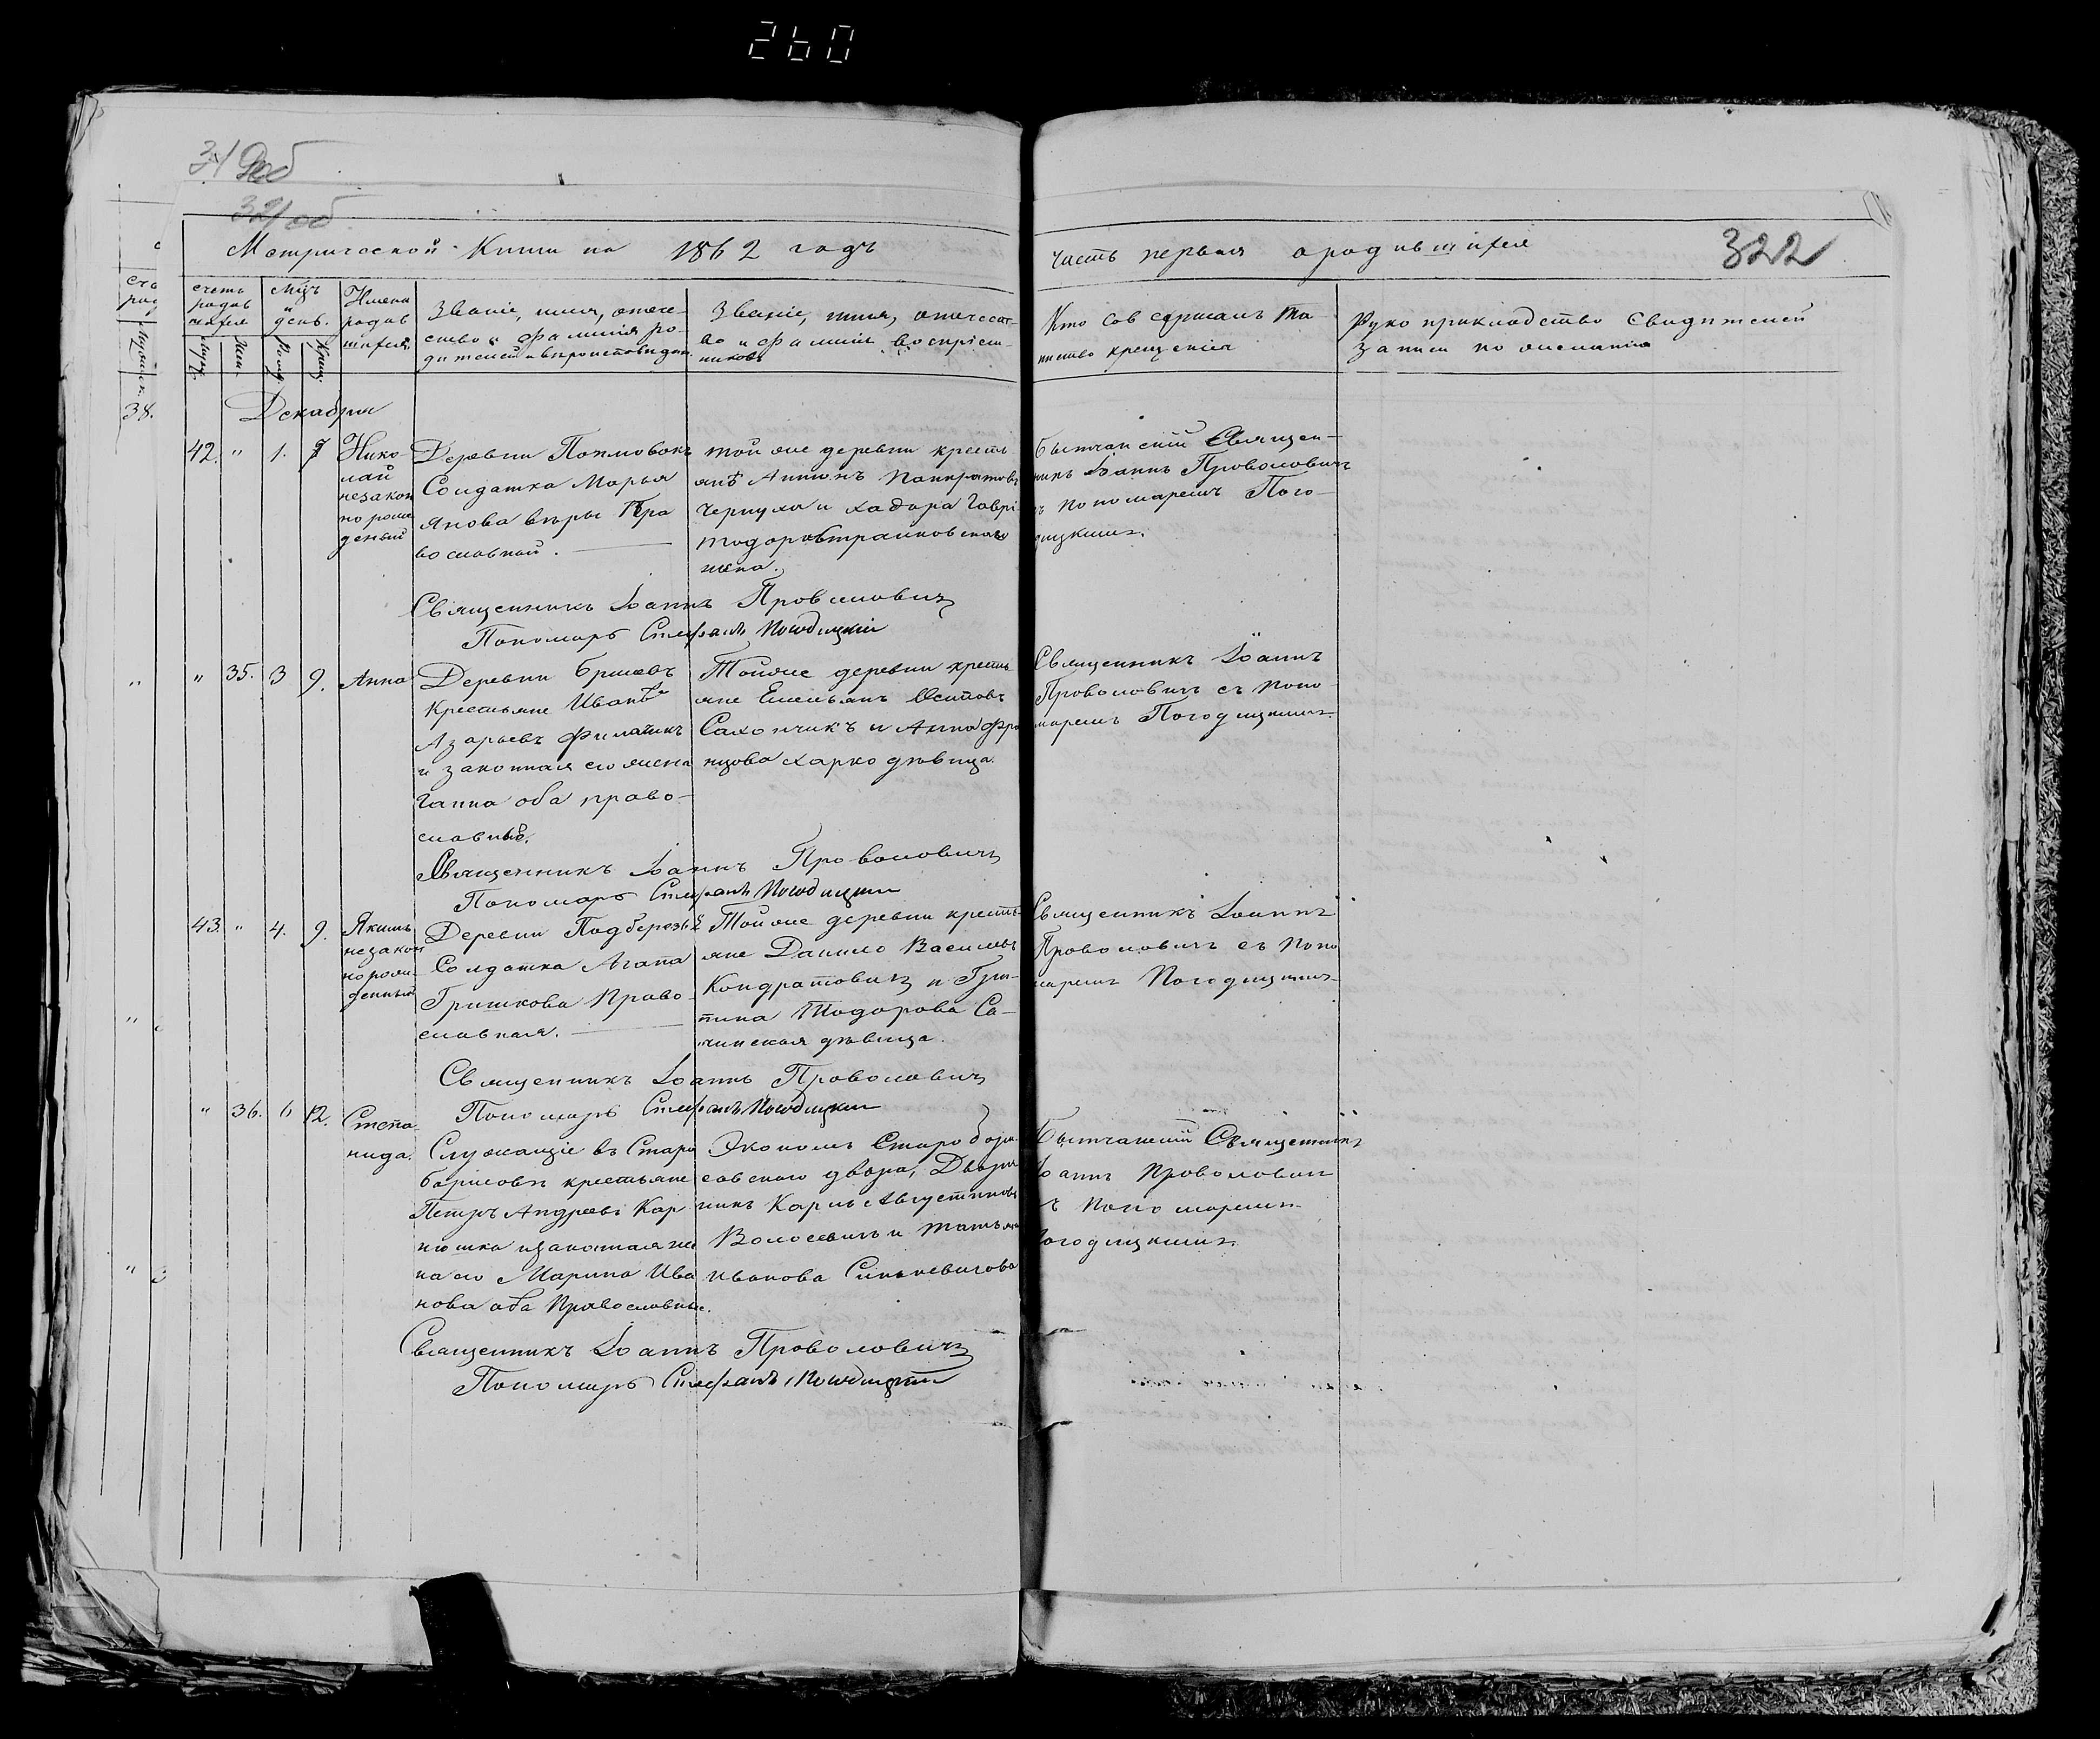 260
322
Метрической Книги на 1862 годъ
часть первая о родившихся
счетъ родив шихся
Муж.
Жен.
Мѣсъ и день.
Рожд.
Крещ.
Имена родив шихся
Званіе, имя, отече-
ство и фамилія ро-
дителей и вѣроисповѣдан.
Званіе, имя, отечест-
во и фамилія воспріем-
никовъ
Кто совершалъ та-
инство крещенія
Рукоприкладство свидѣтелей
записи по желанію
38.
Декабря
42. " 1. 7
Нико
лай
незакон
но рож
деный
Деревни
Солдатка Марья
Янова вѣры Пра
вославной.
той же деревни кресть
янѣ Антонъ Панкратовъ
Чернуха и Ходора Гаврі
жена.
Бытчанскій Священ-
никъ Іоаннъ Проволовичъ
съ пономаремъ Пого-
дицкимъ.
Священникъ Іоаннъ Проволовичъ
Пономарь Стефанъ Погодицкій
" 35. 3 9.
Анна
Деревни Брилевъ
Крестьяне Иванъ
Азарьевъ Филатикъ
и законная его жена
Ганна оба право-
славные.
Той же деревни кресть
яне Емельянъ Осиповъ
Сахончикъ и Анна Фра
нцова Харко дѣвица.
Священникъ Іоаннъ
Проволовичъ съ поно
маремъ Погодицкимъ
Священникъ Іоаннъ Проволовичъ
Пономарь Стефанъ Погодицкій
43. " 4. 9.
Якимъ
незакон
но рож-
денный
Деревни Подберезья
Солдатка Агапа
Гришкова Право-
славная.
Той же деревни кресть-
яне Данило Васильевъ
Кондратовичъ и Гри-
пина Тодорова Са-
чинская дѣвица.
Священникъ Іоаннъ
Проволовичъ съ поно
маремъ Погодицкимъ
Священникъ Іоаннъ Проволовичъ
Пономарь Стефанъ Погодицкій
" 36. 6 12.
Степа-
нида.
Служащіе въ Старо
борисовѣ крестьяне
Петръ Андреевъ Кар
нюшка и законная же
на его Марина Ива
нова оба Православные.
Экономъ Старобори-
совскаго двора, Дворя
нинъ Карлъ Августиновъ
Волосевичъ и Татьяна
Иванова Синкевичова
Бытчанскій Священникъ
Іоаннъ Проволовичъ
съ пономаремъ
Погодицкимъ
Священникъ Іоаннъ Проволовичъ
Пономарь Стефанъ Погодицкій